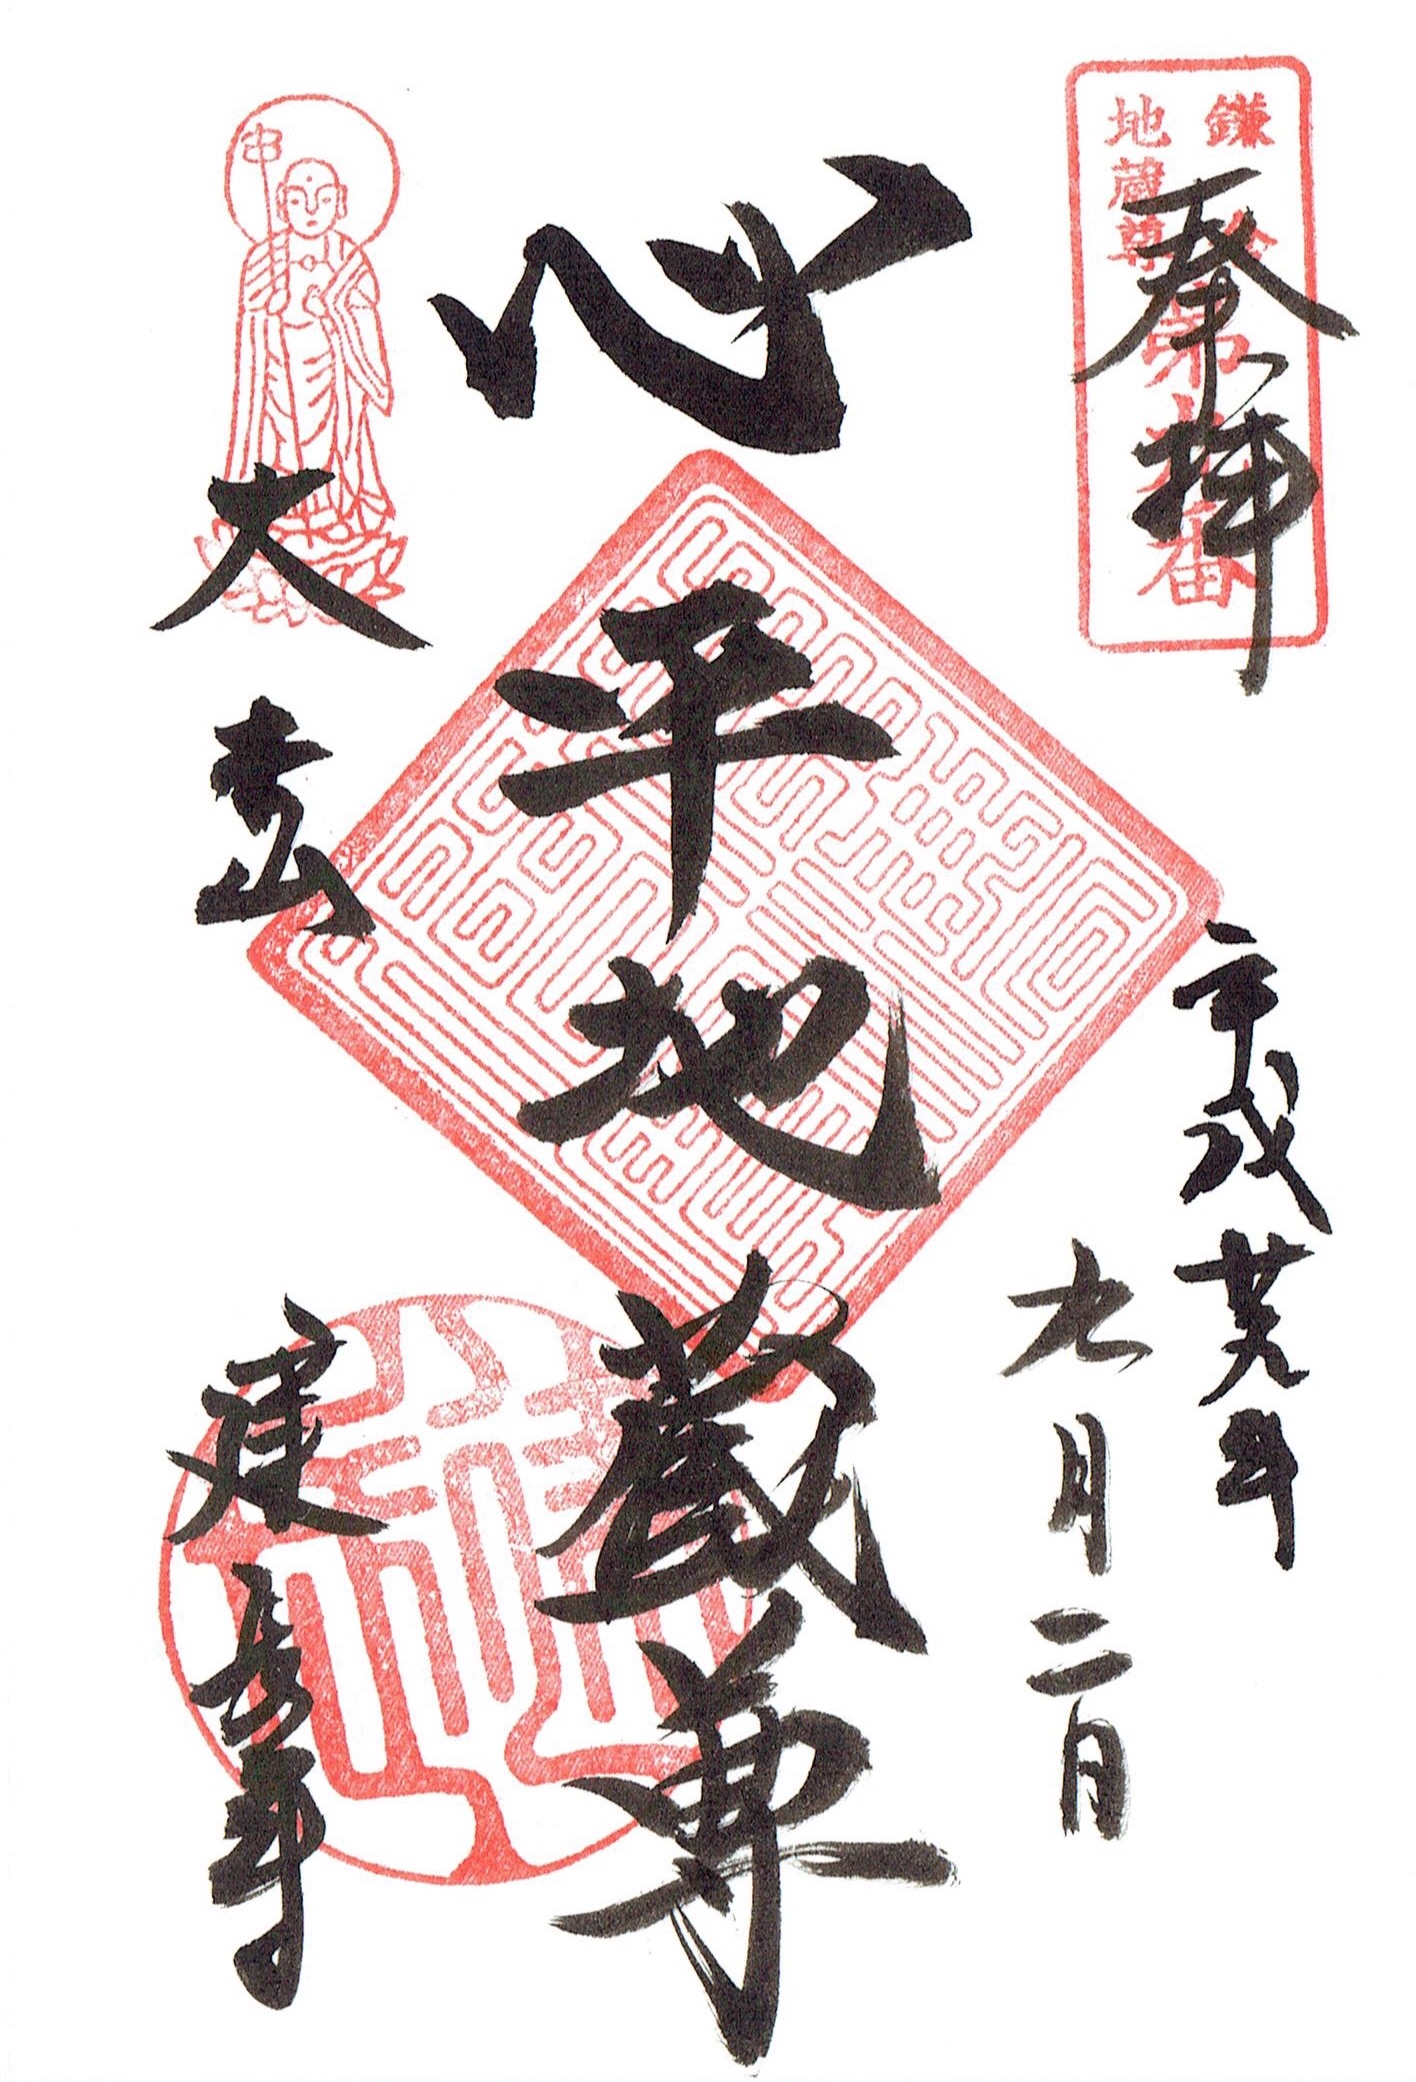 鎌倉
地蔵尊
第九番
奉拝
平成廿九年
九月二日
心平地蔵尊
大本山
建長寺